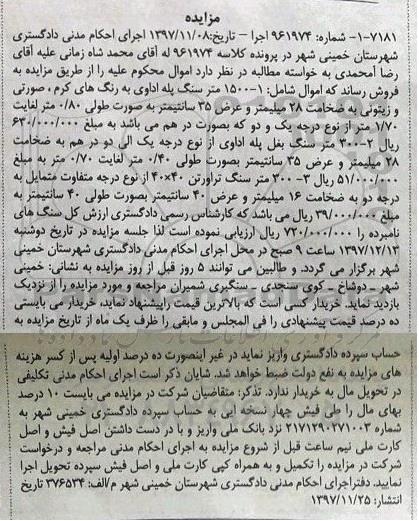 مزایده
۷۱۸۱-۱- شماره: ۹۶۱۹۷۴ اجرا – تاریخ:۱۳۹۷/۱۱/۰۸ اجرای احکام مدنی دادگستری
شهرستان خمینی شهر در پرونده کلاسه ۹۶۱۹۷۴ له آقای محمد شاه زمانی علیه آقای
رضا امحمدی به خواسته مطالبه در نظر دارد اموال محکوم علیه را از طریق مزایده به
فروش رساند که اموال شامل: ۱-۱۵۰۰ متر سنگ پله اداوی به رنگ های کرم ، صورتی
و زیتونی به ضخامت ۲۸ میلیمتر و عرض ۳۵ سانتیمتر به صورت طولی ۰/۸۰ متر لغایت
۱/۷۰ متر از نوع درجه یک و دو که بصورت در هم می باشد به مبلغ ۶۳۰/۰۰۰/۰۰۰
ریال ۲-۳۰۰ متر سنگ بغل پله اداوی از نوع درجه یک الی دو در هم به ضخامت
۲۸ میلیمتر و عرض ۳۵ سانتیمتر بصورت طولی ۰/۴۰ متر لغایت ۰/۷۰ متر به مبلغ
۵۱/۰۰۰/۰۰۰ ریال ۳- ۳۰۰ متر سنگ تراورتن ۴۰×۴۰ از نوع درجه متفاوت متمایل به
درجه دو به ضخامت ۱۶ میلیمتر و عرض ۴۰ سانتیمتر بصورت طولی ۴۰ سانتیمتر به
مبلغ ۳۹/۰۰۰/۰۰۰ ریال می باشد که کارشناس رسمی دادگستری ارزش کل سنگ های
نامبرده را ۷۲۰/۰۰۰/۰۰۰ ریال ارزیابی نموده است لذا جلسه مزایده در تاریخ دوشنبه
۱۳۹۷/۱۲/۱۳ ساعت ۹ صبح در محل اجرای احکام مدنی دادگستری شهرستان خمینی
شهر برگزار می گردد. و طالبین می توانند ۵ روز قبل از روز مزایده به نشانی: خمینی
شهر – دوشاخ – کوی سنجدی – سنگبری شمیران مراجعه و مورد مزایده را از نزدیک
بازدید نماید. خریدار کسی است که بالاترین قیمت راپیشنهاد نماید، خریدار می بایستی
ده درصد قیمت پیشنهادی را فی المجلس و مابقی را ظرف یک ماه از تاریخ مزایده به
حساب سپرده دادگستری واریز نماید در غیر اینصورت ده درصد اولیه پس از کسر هزینه
های مزایده به نفع دولت ضبط خواهد شد. شایان ذکر است اجرای احکام مدنی تکلیفی
در تحویل مال به خریدار ندارد. تذکر: متقاضیان شرکت در مزایده می بایست ۱۰ درصد
بهای مال را طی فیش چهار نسخه ایی به حساب سپرده دادگستری خمینی شهر به
شماره ۲۱۷۱۲۹۰۲۷۱۰۰۳ نزد بانک ملی واریز و با در دست داشتن اصل فیش و اصل
کارت ملی نیم ساعت قبل از شروع مزایده به اجرای احکام مدنی مراجعه و درخواست
شرکت در مزایده را تکمیل و به همراه کپی کارت ملی و اصل فیش سپرده تحویل اجرا
نمایید. دفتراجرای احکام مدنی دادگستری شهرستان خمینی شهر م/الف: ۳۷۶۵۳۴ تاریخ
انتشار: ۱۳۹۷/۱۱/۲۵